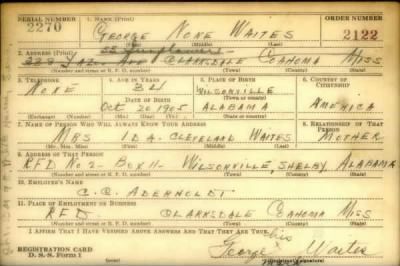 SERIAL NUMBER 1. NAME (Print) ORDER NUMBER
2270 GEORGE NONE WAITES 2122
(First) (Middle) (Last)
2. ADDRESS (Print)
CLARKSDALE COAHOMA MISS
(Number and street or R. F. D. number) (Town) (County) (State)
3. TELEPHONE 4. AGE IN YEARS 5. PLACE OF BIRTH 6. COUNTRY OF CITIZENSHIP
NONE 34 WILSONVILLE
(Town or county)
DATE OF BIRTH
OCT 20 1905 ALABAMA AMERICA
(Exchange) (Number) (Mo.) (Day) (Yr.) (State or country)
7. NAME OF PERSON WHO WILL ALWAYS KNOW YOUR ADDRESS 8. RELATIONSHIP OF THAT PERSON
MRS IDA CLEVELAND WAITES MOTHER
(Mr., Mrs., Miss) (First) (Middle) (Last)
9. ADDRESS OF THAT PERSON
RFD NO 2 BOX 11 WILSONVILLE, SHELBY, ALABAMA
(Number and street or R. F. D. number) (Town) (County) (State)
10. EMPLOYER'S NAME
C. C. ADERHOLDT
11. PLACE OF EMPLOYMENT OR BUSINESS
RFD. CLARKSDALE COAHOMA MISS
(Number and street or R. F. D. number) (Town) (County) (State)
I AFFIRM THAT I HAVE VERIFIED ABOVE ANSWERS AND THAT THEY ARE TRUE.
his
REGISTRATION CARD George Waites
D. S. S. Form 1 (Registrant's signature)